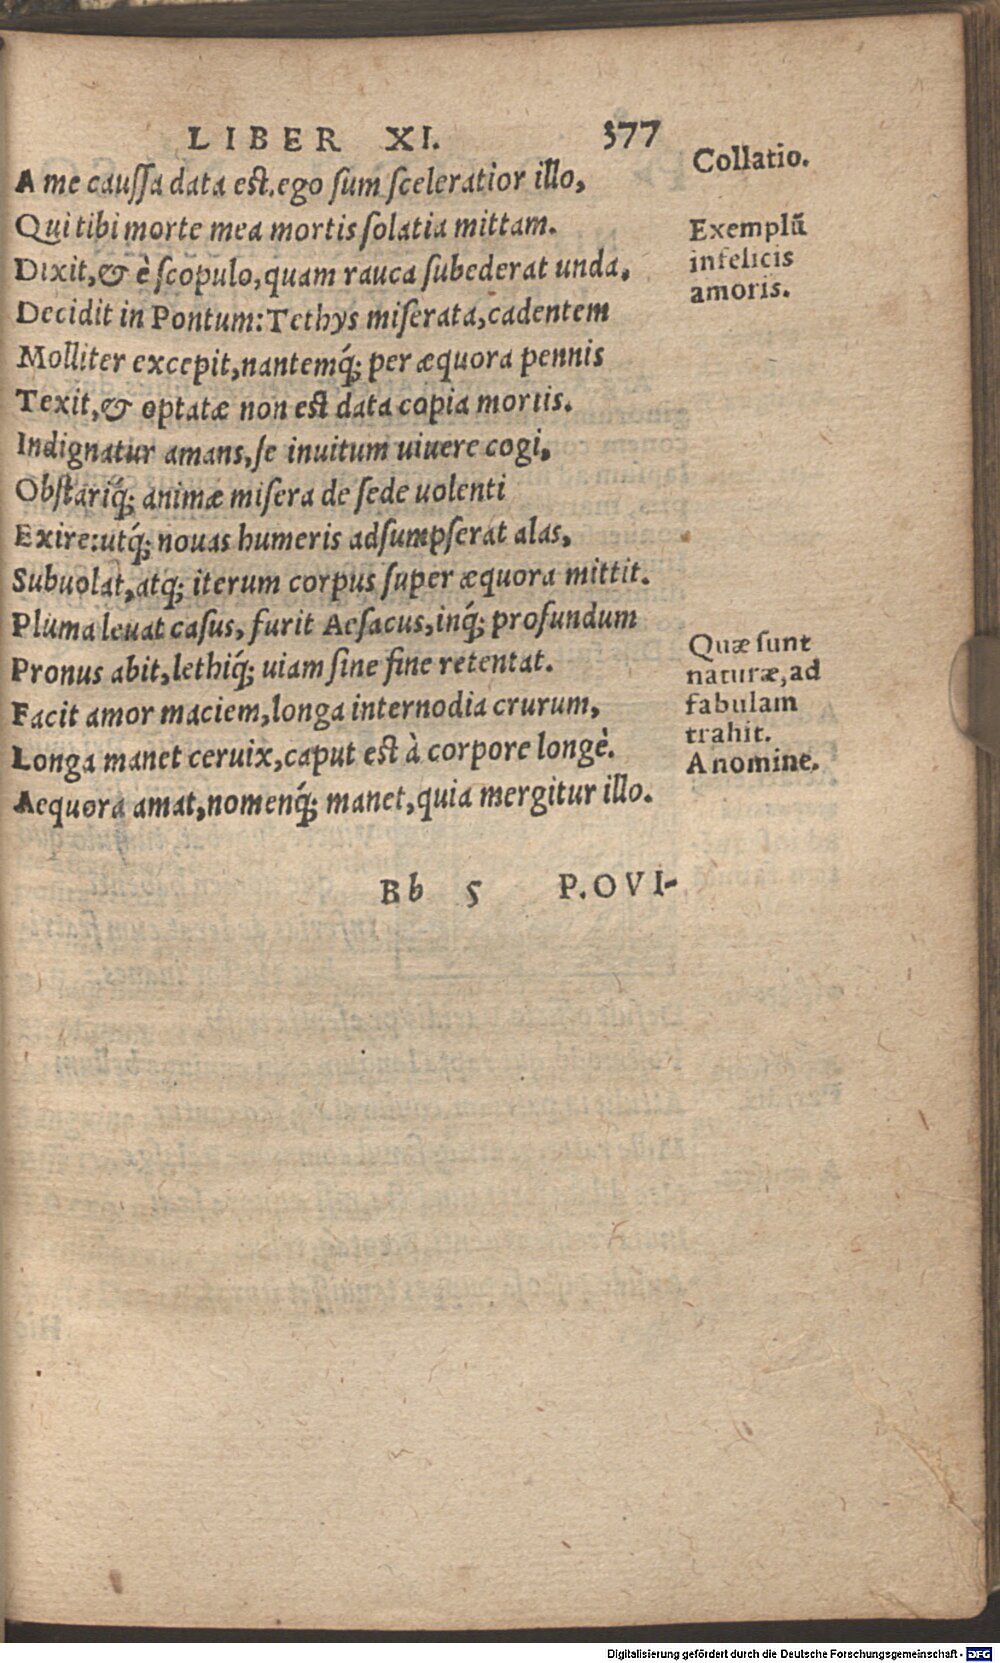 LIBER XI. 377
A me caussa data est, ego sum sceleratior illo,
Qui tibi morte mea mortis solatia mittam.
Dixit, & è scopulo, quam rauca subederat unda,
Decidit in Pontum: Tethys miserata, cadentem
Molliter excepit, nantemq́; per æquora pennis
Texit, & optatæ non est data copia mortis.
Indignatur amans, se inuitum uiuere cogi,
Obstariq́; animæ misera de sede uolenti
Exire: utq́; nouas humeris adsumpserat alas,
Subuolat, atq; iterum corpus super æquora mittit.
Pluma leuat casus, furit Aesacus, inq́; profundum
Pronus abit, lethiq́; uiam sine fine retentat.
Facit amor maciem, longa internodia crurum,
Longa manet ceruix, caput est à corpore longè.
Aequora amat, nomenq́; manet, quia mergitur illo.
Collatio.
Exemplũ
infelicis
amoris.
Quæ sunt
naturæ, ad
fabulam
trahit.
A nomine.
Bb 5 P. OVI-
Digitalisierung gefördert durch die Deutsche Forschungsgemeinschaft - DFG